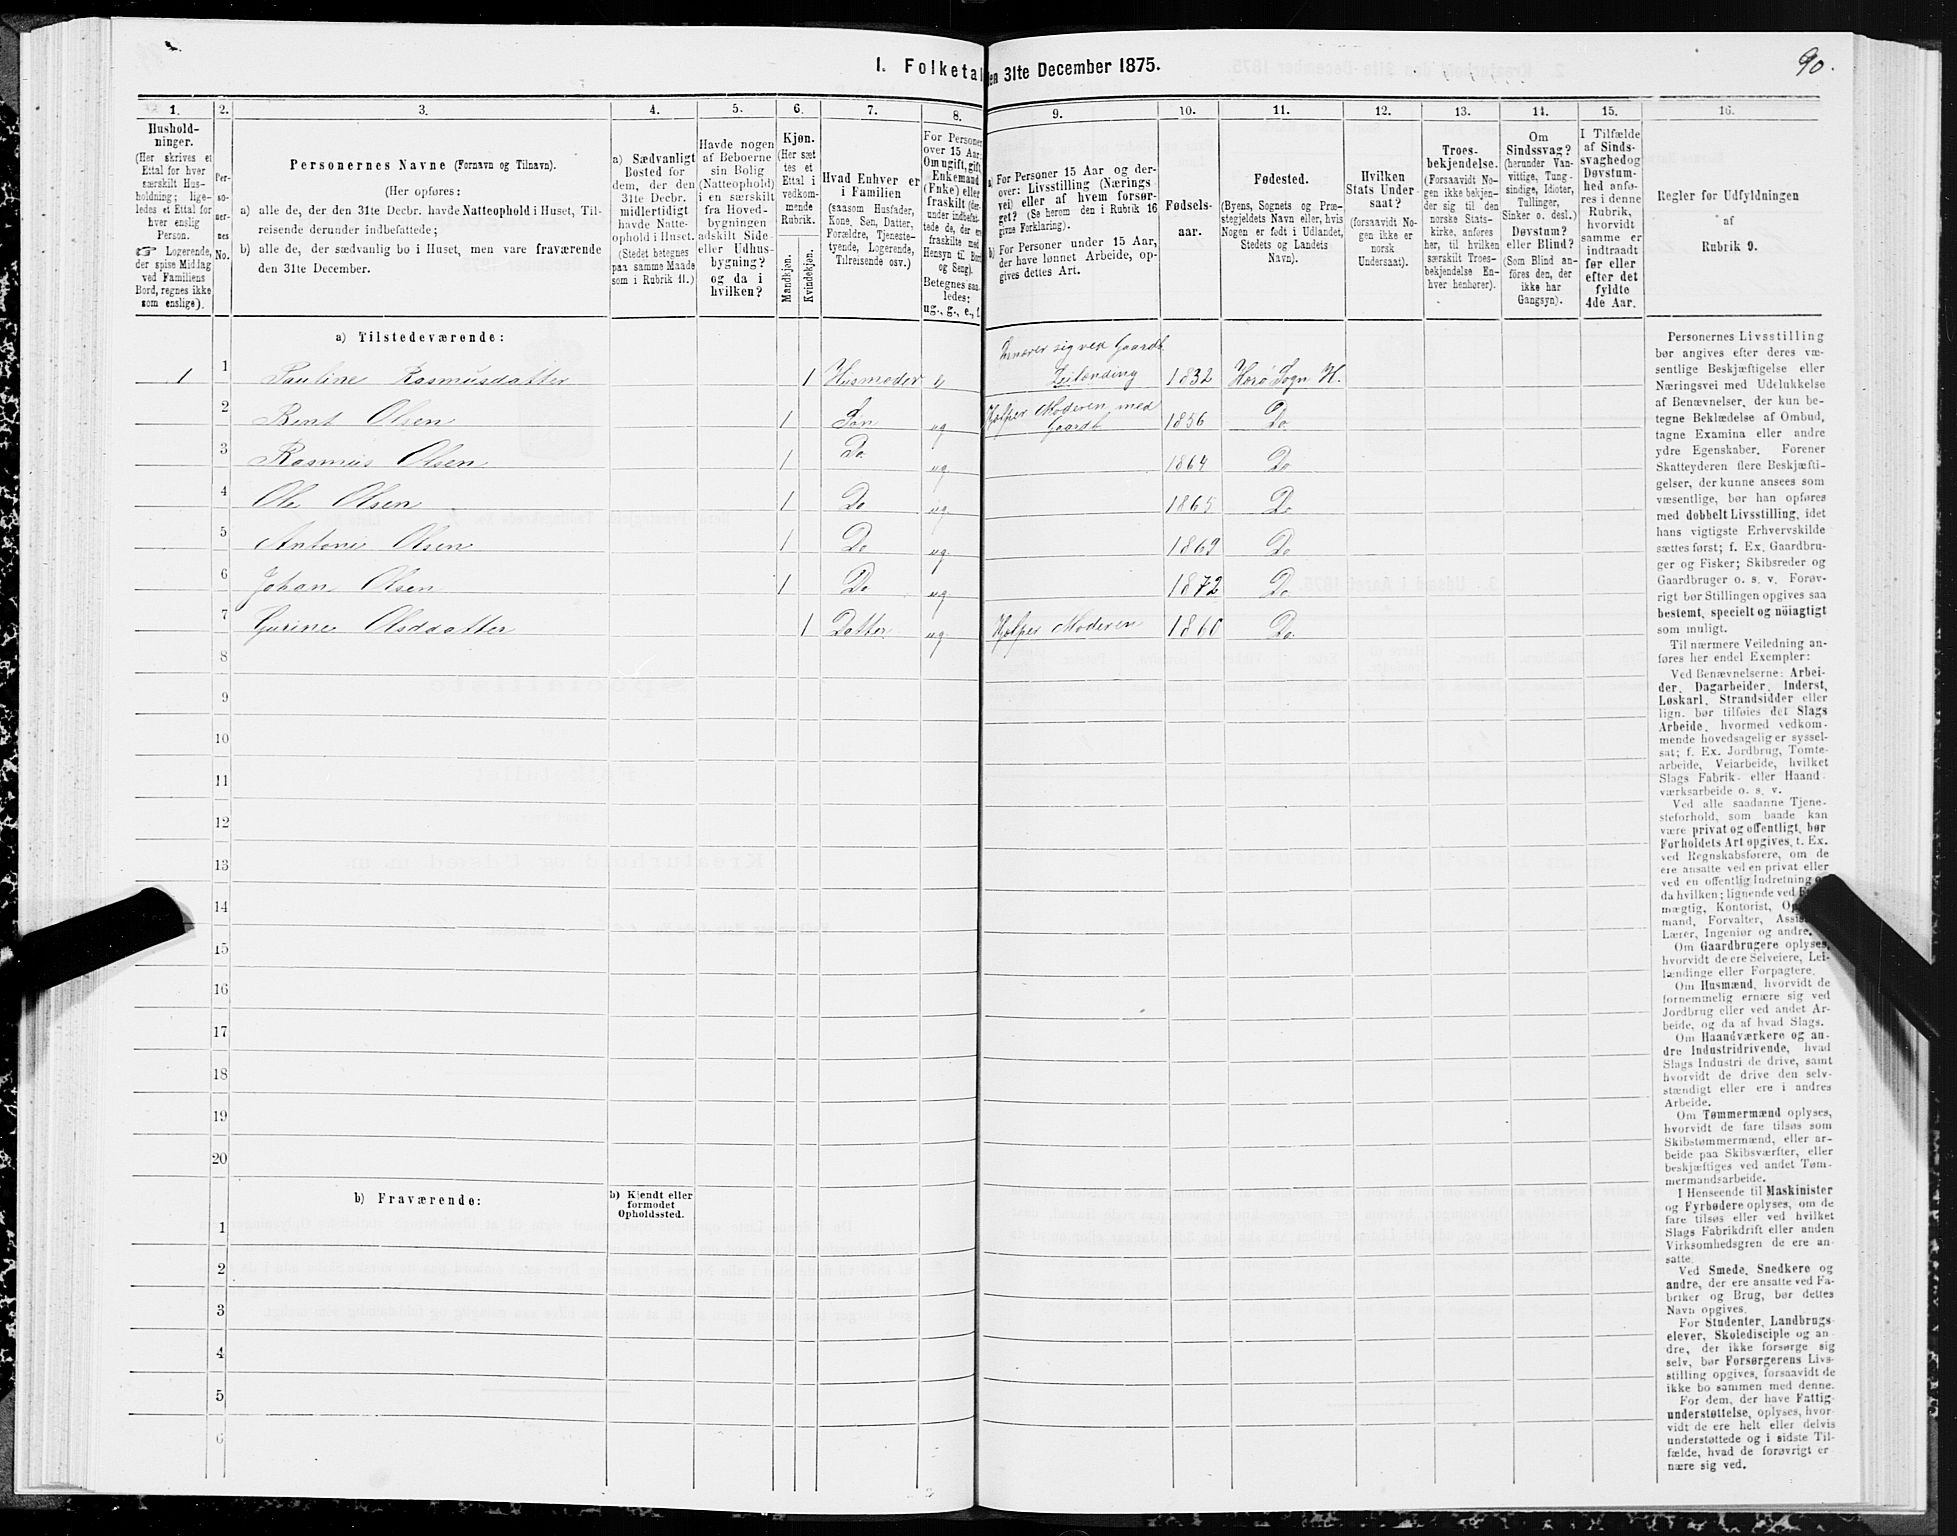 90.
1. Folketal den 31te December 1875.
1. 2. 3. 4. 5. 6. 7. 8. 9. 10. 11. 12. 13. 14. 15. 16.
Hushold-
ninger.
(Her skrives et
Ettal for hver
særskilt Hus-
holdning; lige-
ledes et Ettal for
hver enslig
Person.
☞ Logerende,
der spise Middag
ved Familiens
Bord, regnes ikke
som enslige).
Per-
so-
ner-
nes
No.
Personernes Navne (Fornavn og Tilnavn).
(Her opføres:
a) alle de, der den 31te Decbr. havde Natteophold i Huset, Til-
reisende derunder indbefattede;
b) alle de, der sædvanlig bo i Huset, men vare fraværende
den 31te December.
a) Sædvanligt
Bosted for
dem, der den
31te Decbr.
midlertidigt
havde Natte-
ophold i Huset.
(Stedet betegnes
paa samme Maade
som i Rubrik 11.)
Havde nogen
af Beboerne
sin Bolig
(Natteophold)
i en særskilt
fra Hoved-
bygningen
adskilt Side-
eller Udhus-
bygning?
og da i
hvilken?
Kjøn.
(Her sæt
tes et
Ettal i
vedkom-
mende
Rubrik.
Mandkjøn.
Kvindekjøn.
Hvad Enhver er
i Familien
(saasom Husfader,
Kone, Søn, Datter,
Forældre, Tjeneste-
tyende, Logerende,
Tilreisende osv.)
For Personer
over 15 Aar:
Om ugift, gift,
Enkemand
(Enke) eller
fraskilt (der-
under indbefat-
tede de, der ere
fraskilte med
Hensyn til Bord
og Seng).
Betegnes saa-
ledes:
ug., g., e., f.
a) For Personer 15 Aar og der-
over: Livsstilling (Nærings-
vei) eller af hvem forsør-
get? (Se herom den i Rubrik 16
givne Forklaring).
b) For Personer under 15 Aar,
der have lønnet Arbeide, op-
gives dettes Art.
Fødsels-
aar.
Fødested.
(Byens, Sognets og Præ-
stegjeldets Navn eller, hvis
Nogen er født i Udlandet,
Stedets og Landets
Navn).
Hvilken
Stats Under-
saat?
(forsaavidt No-
gen ikke er
norsk
Undersaat).
Troes-
bekjendelse.
(Forsaavidt No-
gen ikke bekjen-
der sig til den
norske Stats-
kirke, anføres
her, til hvilken
særskilt Troes-
bekjendelse En-
hver henhører).
Om
Sindssvag?
(herunder Van-
vittige, Tung-
sindige, Idioter,
Sinker o. desl.)
Døvstum?
eller Blind?
(Som Blind an-
føres den, der
ikke har
Gangsyn).
I Tilfælde
af Sinds-
svaghed og
Døvstum-
hed anfø-
res i denne
Rubrik,
hvorvidt
samme er
indtraadt
før eller
efter det
fyldte
4de Aar.
Regler for Udfyldningen
af
Rubrik 9.
a) Tilstedeværende:
Ernærer sig ved Gaardb.
1 1 Pauline Rasmusdatter 1 Husmoder e Leilænding 1832 Herø Sogn H.
Hjælper Moderen med
2 Bernt Olsen 1 Søn ug Gaardb 1856 Do
3 Rasmus Olsen 1 Do. ug 1864 Do
4 Ole Olsen 1 Do ug 1865 Do
5 Antoni Olsen 1 Do ug 1869 Do
6 Johan Olsen 1 Do ug 1872 Do
7 Gurine Olsdaatter 1 Datter ug Hjelper Moderen 1860 Do
8
9
10
11
12
13
14
15
16
17
18
19
20
b) Fraværende:
b) Kjendt eller
formodet
Opholdssted.
1
2
3
4
5
6
Personernes Livsstilling
bør angives efter deres væ-
sentlige Beskjæftigelse eller
Næringsvei med Udelukkelse
af Benævnelser, der kun be-
tegne Beklædelse af Ombud,
tagne Examina eller andre
ydre Egenskaber. Forener
Skatteyderen flere Beskjæfti-
gelser, der kunne ansees som
væsentlige, bør han opføres
med dobbelt Livsstilling, idet
hans vigtigste Erhvervskilde
sættes først; f. Ex. Gaardbru-
ger og Fisker; Skibsreder og
Gaardbruger o. s. v. Forøv-
rigt bør Stillingen opgives saa
bestemt, specielt og nøiagtigt
som muligt.
Til nærmere Veiledning an-
føres her endel Exempler:
Ved Benævnelserne: Arbei-
der, Dagarbeider, Inderst,
Løskarl, Strandsidder eller
lign. bør tilføies det Slags
Arbeide, hvormed vedkom-
mende hovedsagelig er syssel-
sat; f. Ex. Jordbrug, Tomte-
arbeide, Veiarbeide, hvilket
Slags Fabrik- eller Haand-
værksarbeide o. s. v.
Ved alle saadanne Tjene-
steforhold, som baade kan
være privat og offentligt, bør
Forholdets Art opgives, f. Ex.
ved Regnskabsførere, om de
ere ansatte ved en privat eller
ved en offentlig Indretning og
da hvilken; lignende ved
mægtig, Kontorist,
mand, Forvalter,
Lærer, Ingeniør og andre.
Om Gaardbrugere oplyses,
hvorvidt de ere Selveiere, Lei-
lændinge eller Forpagtere.
Om Husmænd, hvorvidt de
fornemmelig ernære sig ved
Jordbrug eller ved andet Ar-
beide, og da af hvad Slags.
Om Haandværkere og an-
dre Industridrivende, hvad
Slags Industri de drive, samt
hvorvidt de drive den selv-
stændigt eller ere i andres
Arbeide.
Om Tømmermænd oplyses,
hvorvidt de fare tilsøs som
Skibstømmermænd, eller ar-
beide paa Skibsværfter, eller
beskjæftiges ved andet Tøm-
mermandsarbeide.
I Henseende til Maskinister
og Fyrbødere oplyses, om de
fare tilsøs eller ved hvilket
Slags Fabrikdrift eller anden
Virksomhedsgren de ere an-
satte.
Ved Smede, Snedkere og
andre, der ere ansatte ved Fa-
briker og Brug, bør dettes
Navn opgives.
For Studenter, Landbrugs-
elever, Skoledisciple og an-
dre, der ikke forsørge sig
selv, bør Forsørgerens Livs-
stilling opgives, forsaavidt de
ikke bo sammen med denne.
For dem, der have Fattig-
understøttelse, oplyses, hvor-
vidt de ere helt eller delvis
understøttede og i sidste Til-
fælde, hvad de forøvrigt er-
nære sig ved.